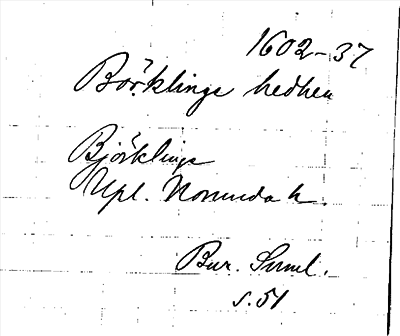 1602-37
Börklinge hedhen
Björklinge
Upl. Norunda h.
Bur. Suml.
s. 51